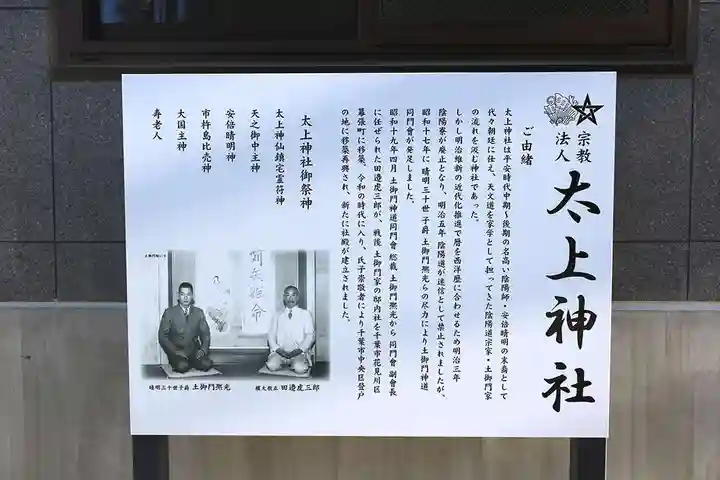 宗教
法人
太上神社
ご由緒
太上神社は平安時代中期~後期の名高い陰陽師・安倍晴明の末裔として
代々朝廷に仕え、天文道を家学として担ってきた陰陽道宗家・土御門家
の流れを汲む神社であった。
しかし明治維新の近代化推進で暦を西洋歴に合わせるため明治三年
陰陽寮が廃止となり、明治五年 陰陽道が迷信として禁止されましたが、
昭和十七年に 晴明三十世 子爵 土御門凞光らの尽力により土御門神道
同門會が発足しました。
昭和十九年四月 土御門神道同門會 総裁 土御門凞光から 同門會 副會長
に任ぜられた田邊虎三郎が、戦後 土御門家の邸内社を千葉市花見川区
幕張町に移築、令和の時代に入り、氏子崇敬者により千葉市中央区登戸
の地に移築再興され、新たに社殿が建立されました。
太上神社御祭神
太上神仙鎮宅霊符神
天之御中主神
安倍晴明神
市杵島比売神
大国主神
寿老人
晴明三十世子爵 土御門凞光
田邊虎三郎